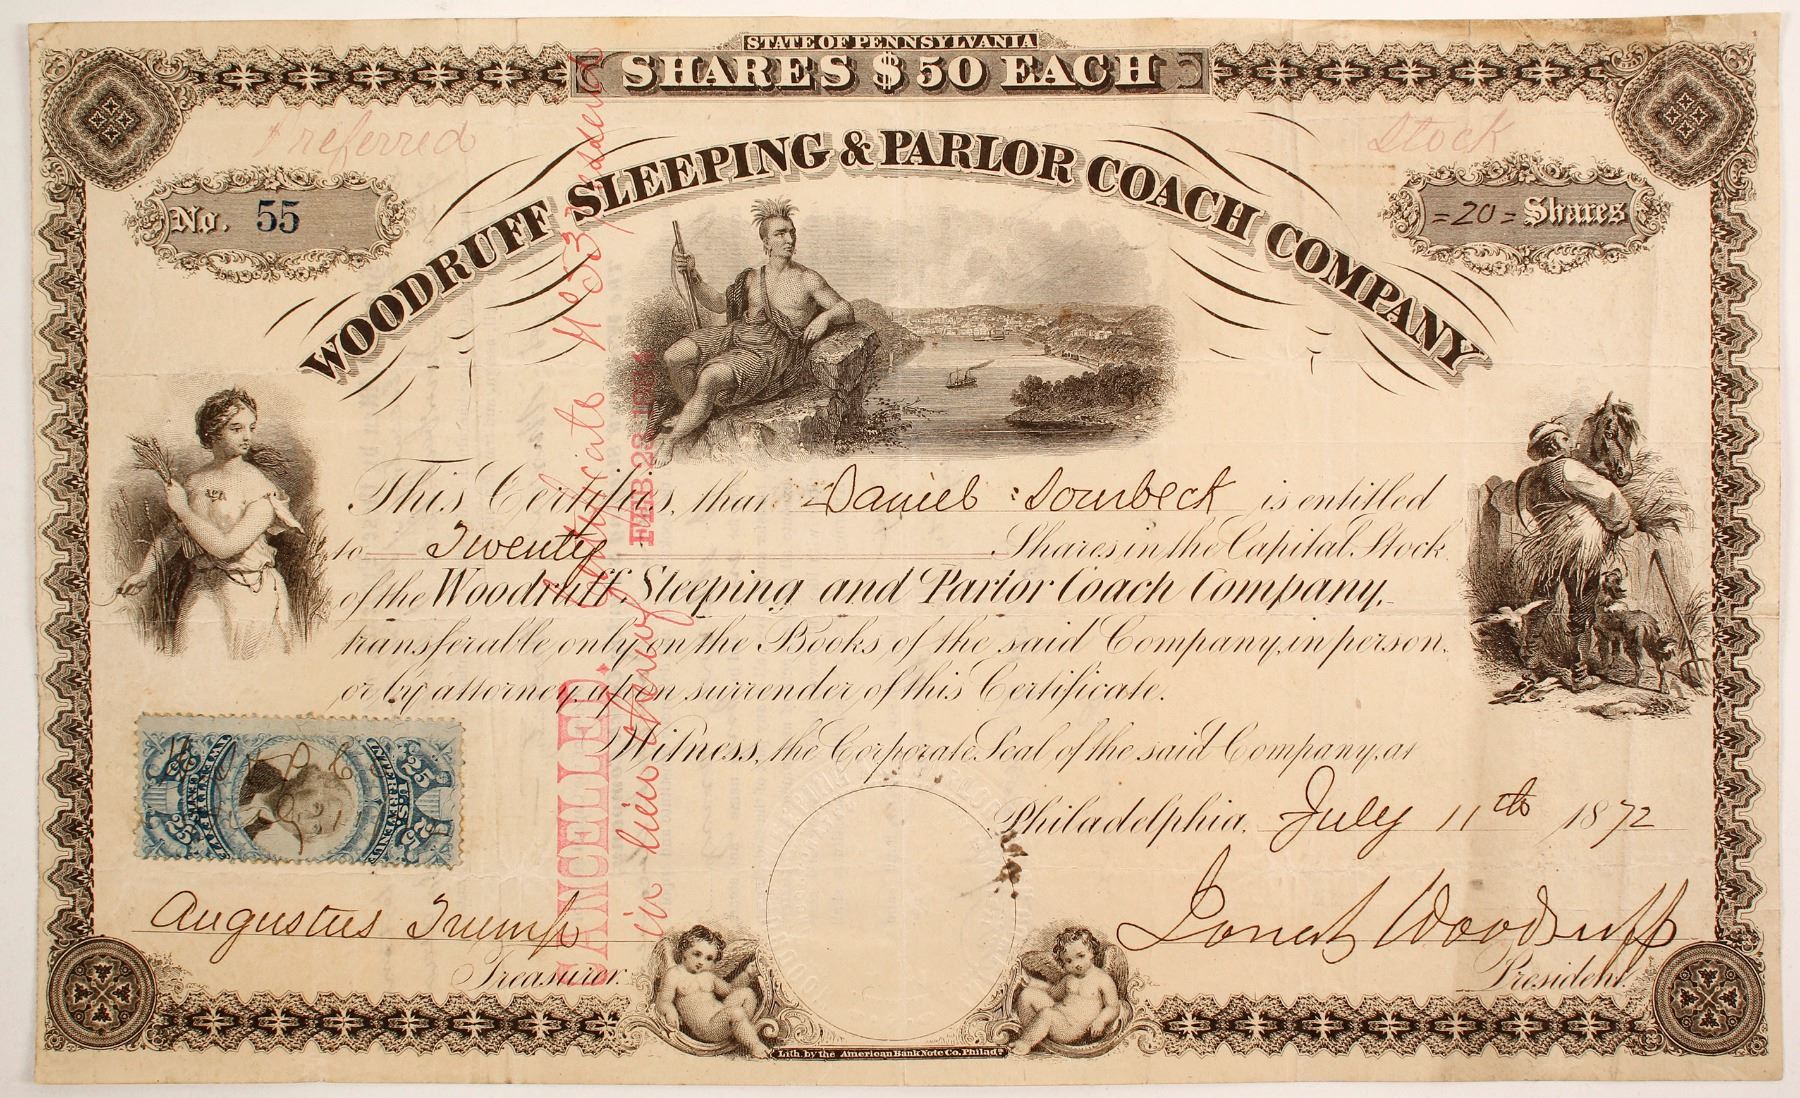 STATE OF PENNSYLVANIA
SHARES $50 EACH
Preferred Stock
No. 55
=20= Shares
WOODRUFF SLEEPING & PARLOR COACH COMPANY
This Certifies, that Daniel Dornbeck is entitled
to Twenty Shares in the Capital Stock
of the Woodruff Sleeping and Parlor Coach Company,
transferable only on the Books of the said Company, in person,
or by attorney, upon surrender of this Certificate.
Witness, the Corporate Seal of the said Company, at
Philadelphia, July 11th 1872
Augustus Trump
Treasurer.
Jonah Woodruff
President.
Lith. by the American Bank Note Co. Philada.
CANCELLED.
FEB 28
Certificate No 33 issued
in lieu thereof
U.S. INTER. REVENUE
25 25